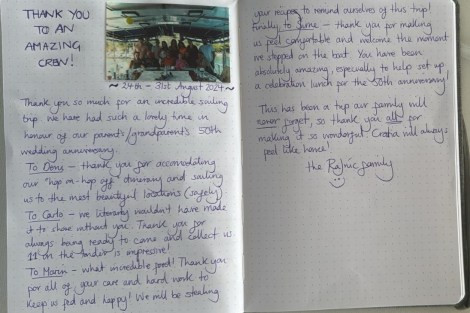 THANK YOU
TO AN
AMAZING
CREW!
~ 24th - 31st August 2024 ~
Thank you so much for an incredible sailing
trip. We have had such a lovely time in
honour of our parent's/grandparent's 50th
wedding anniversary.
To Denis - thank you for accomodating
our "hop on-hop off" itinerary and sailing
us to the most beautiful locations (safely).
To Carlo - we literally wouldn't have made
it to shore without you. Thank you for
always being ready to come and collect us.
11 on the tender is impressive!
To Marin - what incredible food! Thank you
for all of your care and hard work to
keep us fed and happy! We will be stealing
your recipes to remind ourselves of this trip!
Finally, to - thank you for making
us feel comfortable and welcome the moment
we stepped on the boat. You have been
absolutely amazing, especially to help set up
a celebration lunch for the 50th anniversary!
This has been a trip our family will
never forget, so thank you all for
making it so wonderful. Croatia will always
feel like home!
the Rajnic family